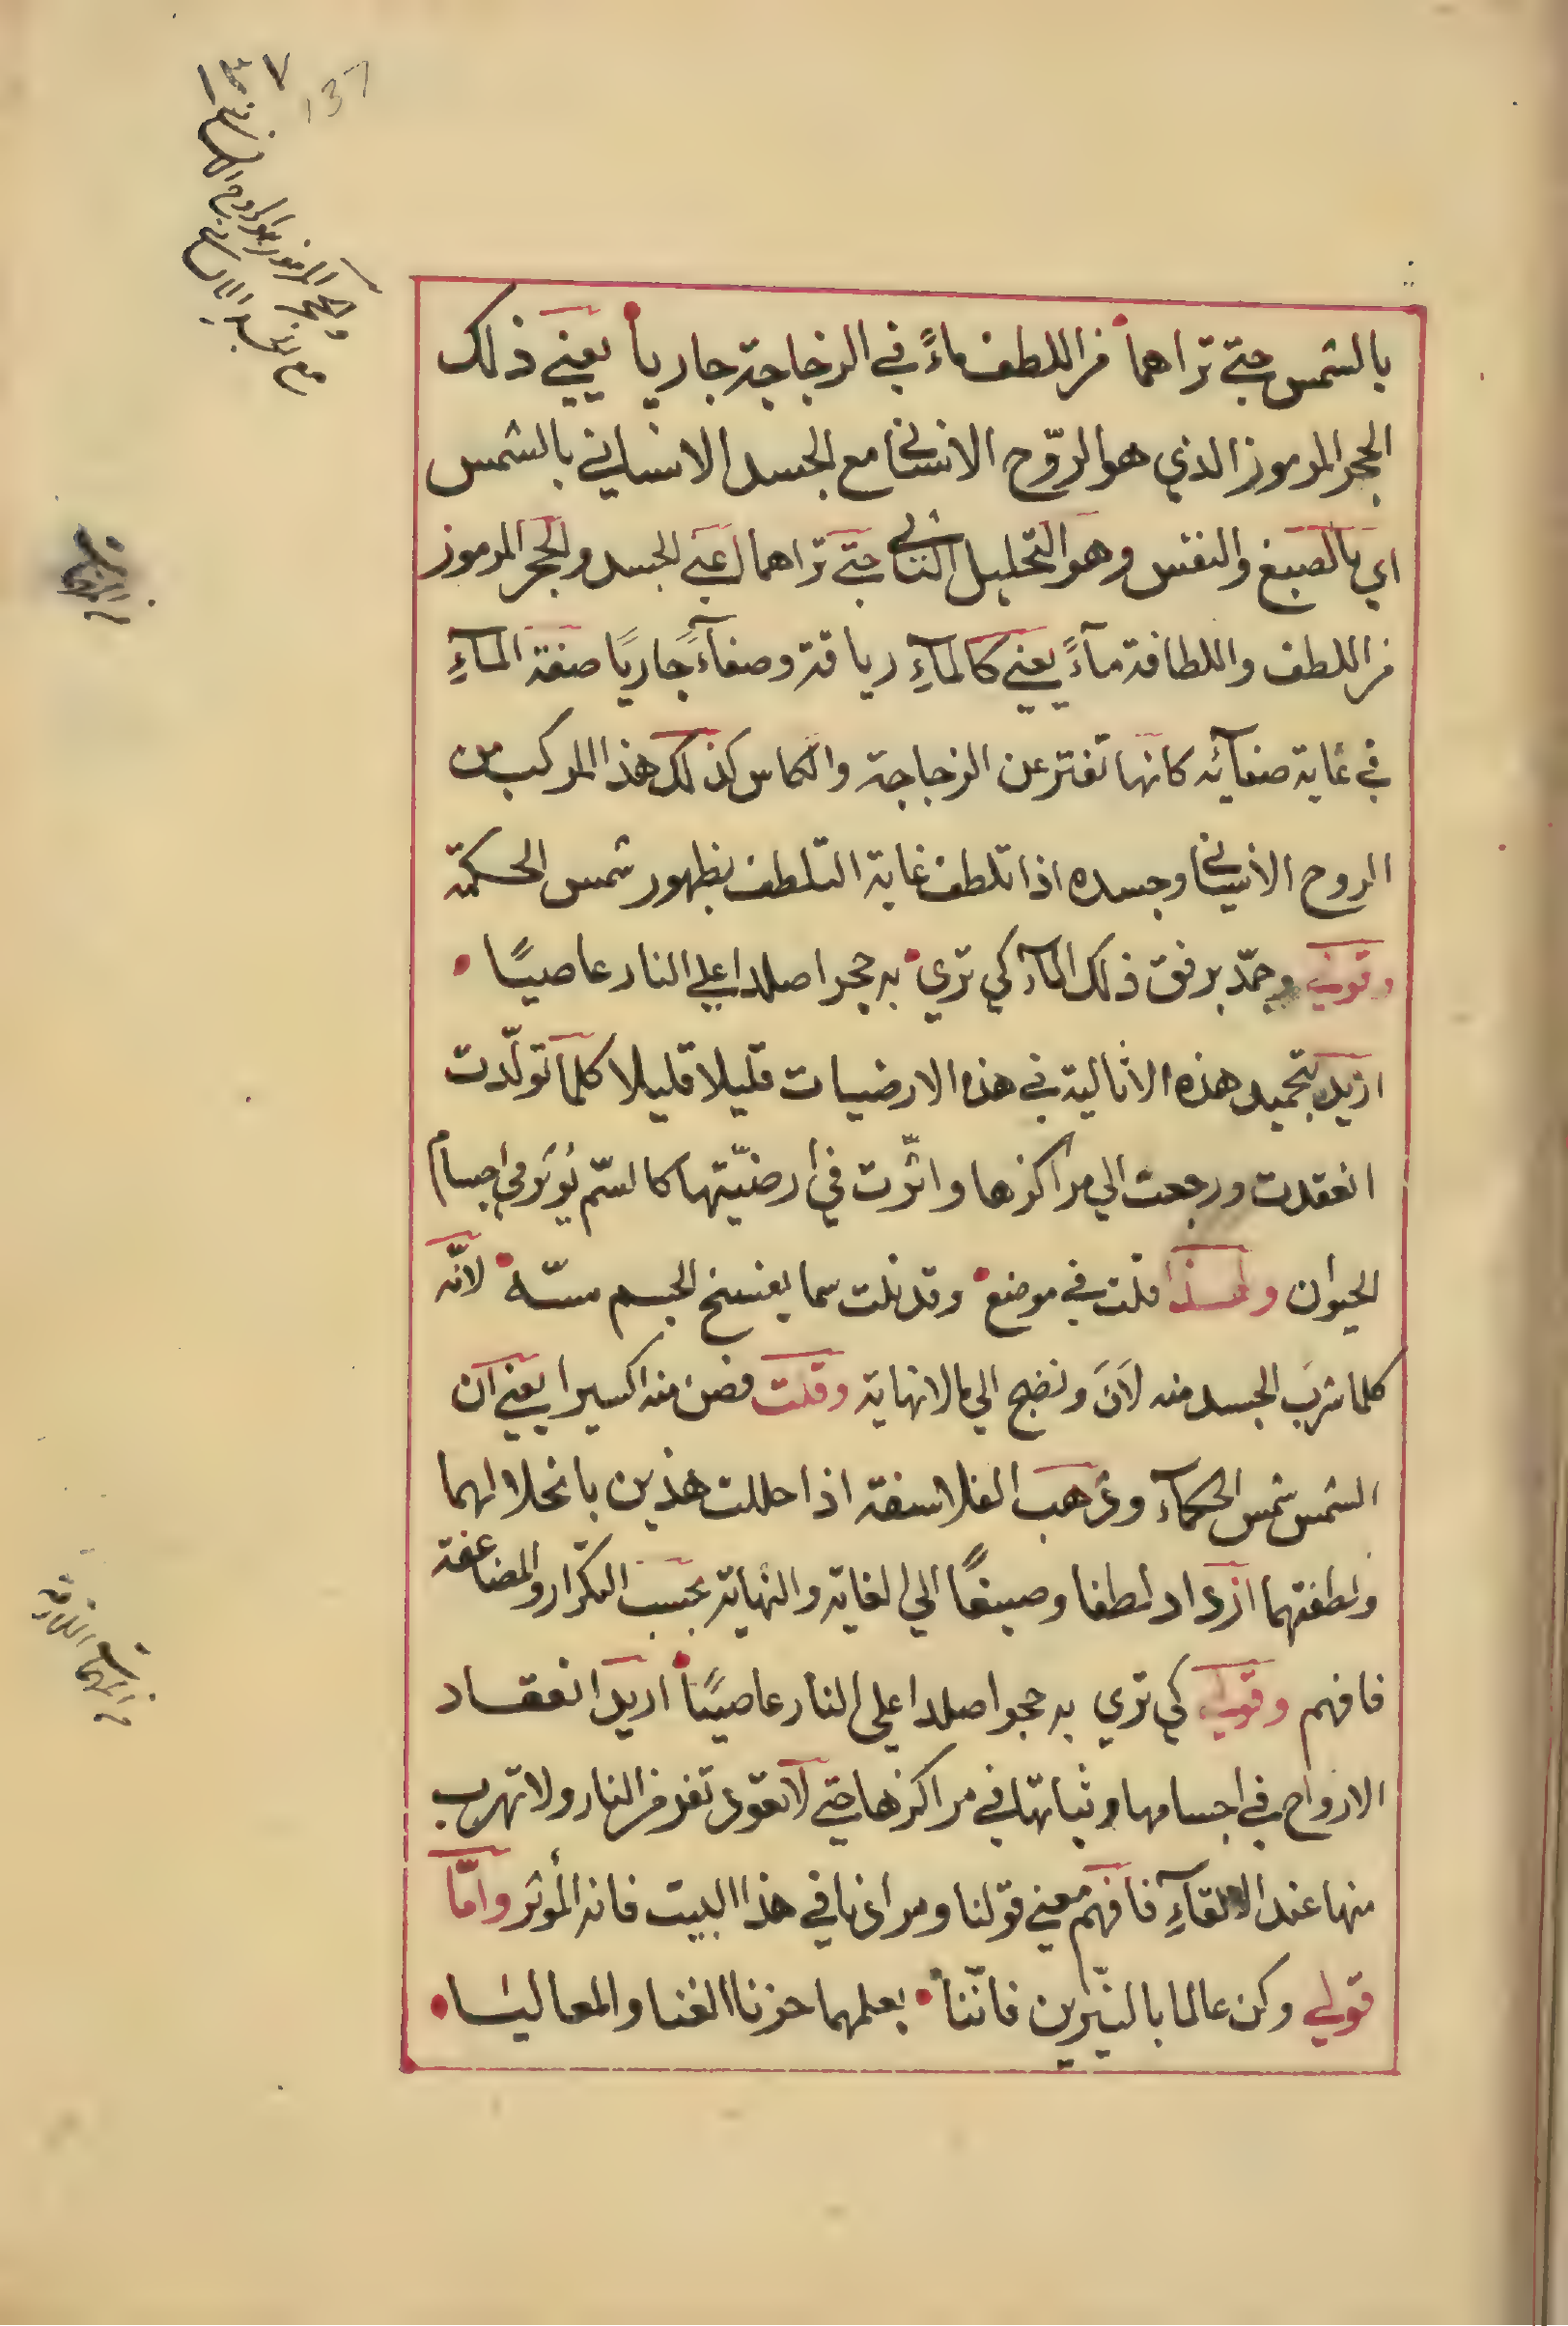 ١٣٧
137
والحجر المرموز هو الروح الانساني
مع الجسد الانساني
بالشمس حتى تراهما من اللطف ماءً في الزجاجة جارياً يعني ذلك
الحجر المرموز الذي هو الروّح الانساني مع الجسد الانساني بالشمس
اي بالصبغ والنفس وهو التحليل الثاني حتى تراهما اعني الجسد والحجر المرموز
من اللطف واللطافة مآءً يعني كالمآءِ رياقة وصفآءً جاريًا صفة المآءِ
في غاية صفآئه كانها تفتر عن الزجاجة والكاس كذلك هذا المركب من
الروح الانساني وجسده اذا تلطف غاية التلطف بظهور شمس الحكمة
وقولي وجمّد برفق ذلك المآء كي تري به حجرا صلدا علي النار عاصيًا
اريد بتجميد هذه الاثالية في هذه الارضيات قليلا قليلا كلما تولّدت
انعقدت ورجعت الي مراكزها واثّرت في ارضيّتها كالسّم يُوثر في اجسام
الحيوان ولهذا قلت في موضع وقد نلت سما يفسخ الجسم مسّه لانّه
كلما شربَ الجسد منه لاَنَ ونضج الي مالا نهاية وقلت فصن منه اكسيرا يعني ان
الشمس شمس الحكمآء وذهب الفلاسفة اذا حللت هذين بانحلالهما
ولطفتهما ازداد لطفا وصبغًا الي الغاية والنهاية بحسب التكرار والمضاعفة
فافهم وقولي كي تري به حجرا صلدا علي النار عاصيًا اريد انعقاد
الارواح في اجسامها وثباتها في مراكزها حتى لا تعود تفر من النار ولا تهرب
منها عند اللقآءِ فافهم معني قولنا ومرادنا في هذا البيت فانه المؤثر وامّا
قولي وكن عالما بالنيّرين فانّنا بعلمهما حزنا الغنا والمعاليا